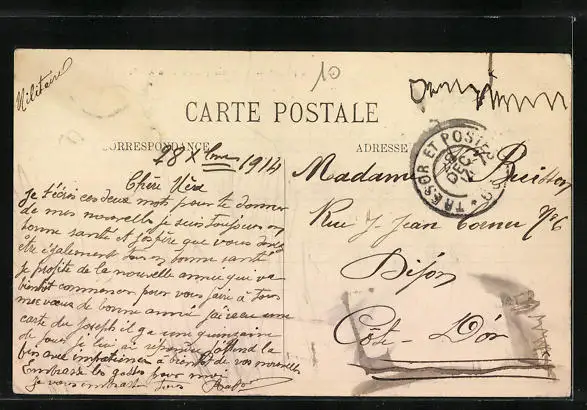 Militaire
10
CARTE POSTALE
CORRESPONDANCE
ADRESSE
TRESOR ET POSTES
28 Xbre 1914
Madame
Rue J. Jean Cornu No 6
Dijon
Côte-D'or
Chère
Je t'écris ces deux mots pour te donner
de mes nouvelles je suis toujours en
bonne santé et j'espère que vous
être également tous en bonne santé
je profite de la nouvelle année qui va
bientot commencer pour vous faire à tous
mes vœux de bonne année j'ai reçu une
carte du Joseph il ya une quinzaine
de jours je lui ai répondu j'attend la
avec impatience à bientot de vos nouvelles
Embrasse les gosses pour moi
je vous embrasse tous